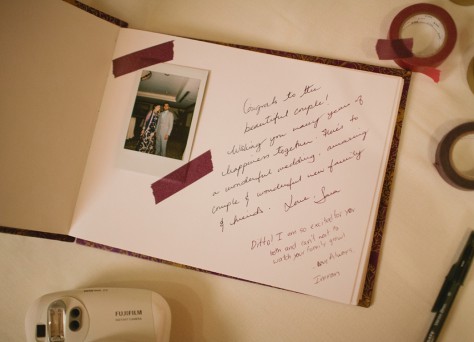 Congrats to the
beautiful couple!
Wishing you many years of
happiness together. Here's to
a wonderful wedding, amazing
couple & wonderful new family
& friends. Love Sara
Ditto! I am so excited for you
both and can't wait to
watch your family grow!
Love
FUJIFILM